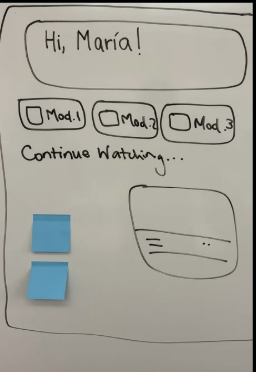 Hi, María!
Mod.1 Mod.2 Mod.3
Continue Watching...